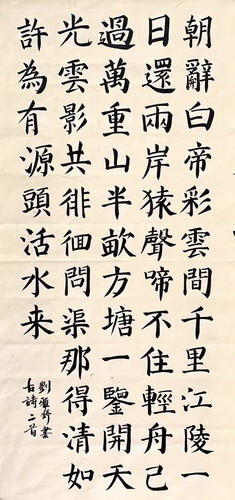 朝辭白帝彩雲間千里江陵一
日還兩岸猿聲啼不住輕舟已
過萬重山半畝方塘一鑒開天
光雲影共徘徊問渠那得清如
許為有源頭活水来
劉雅舒書
古詩二首